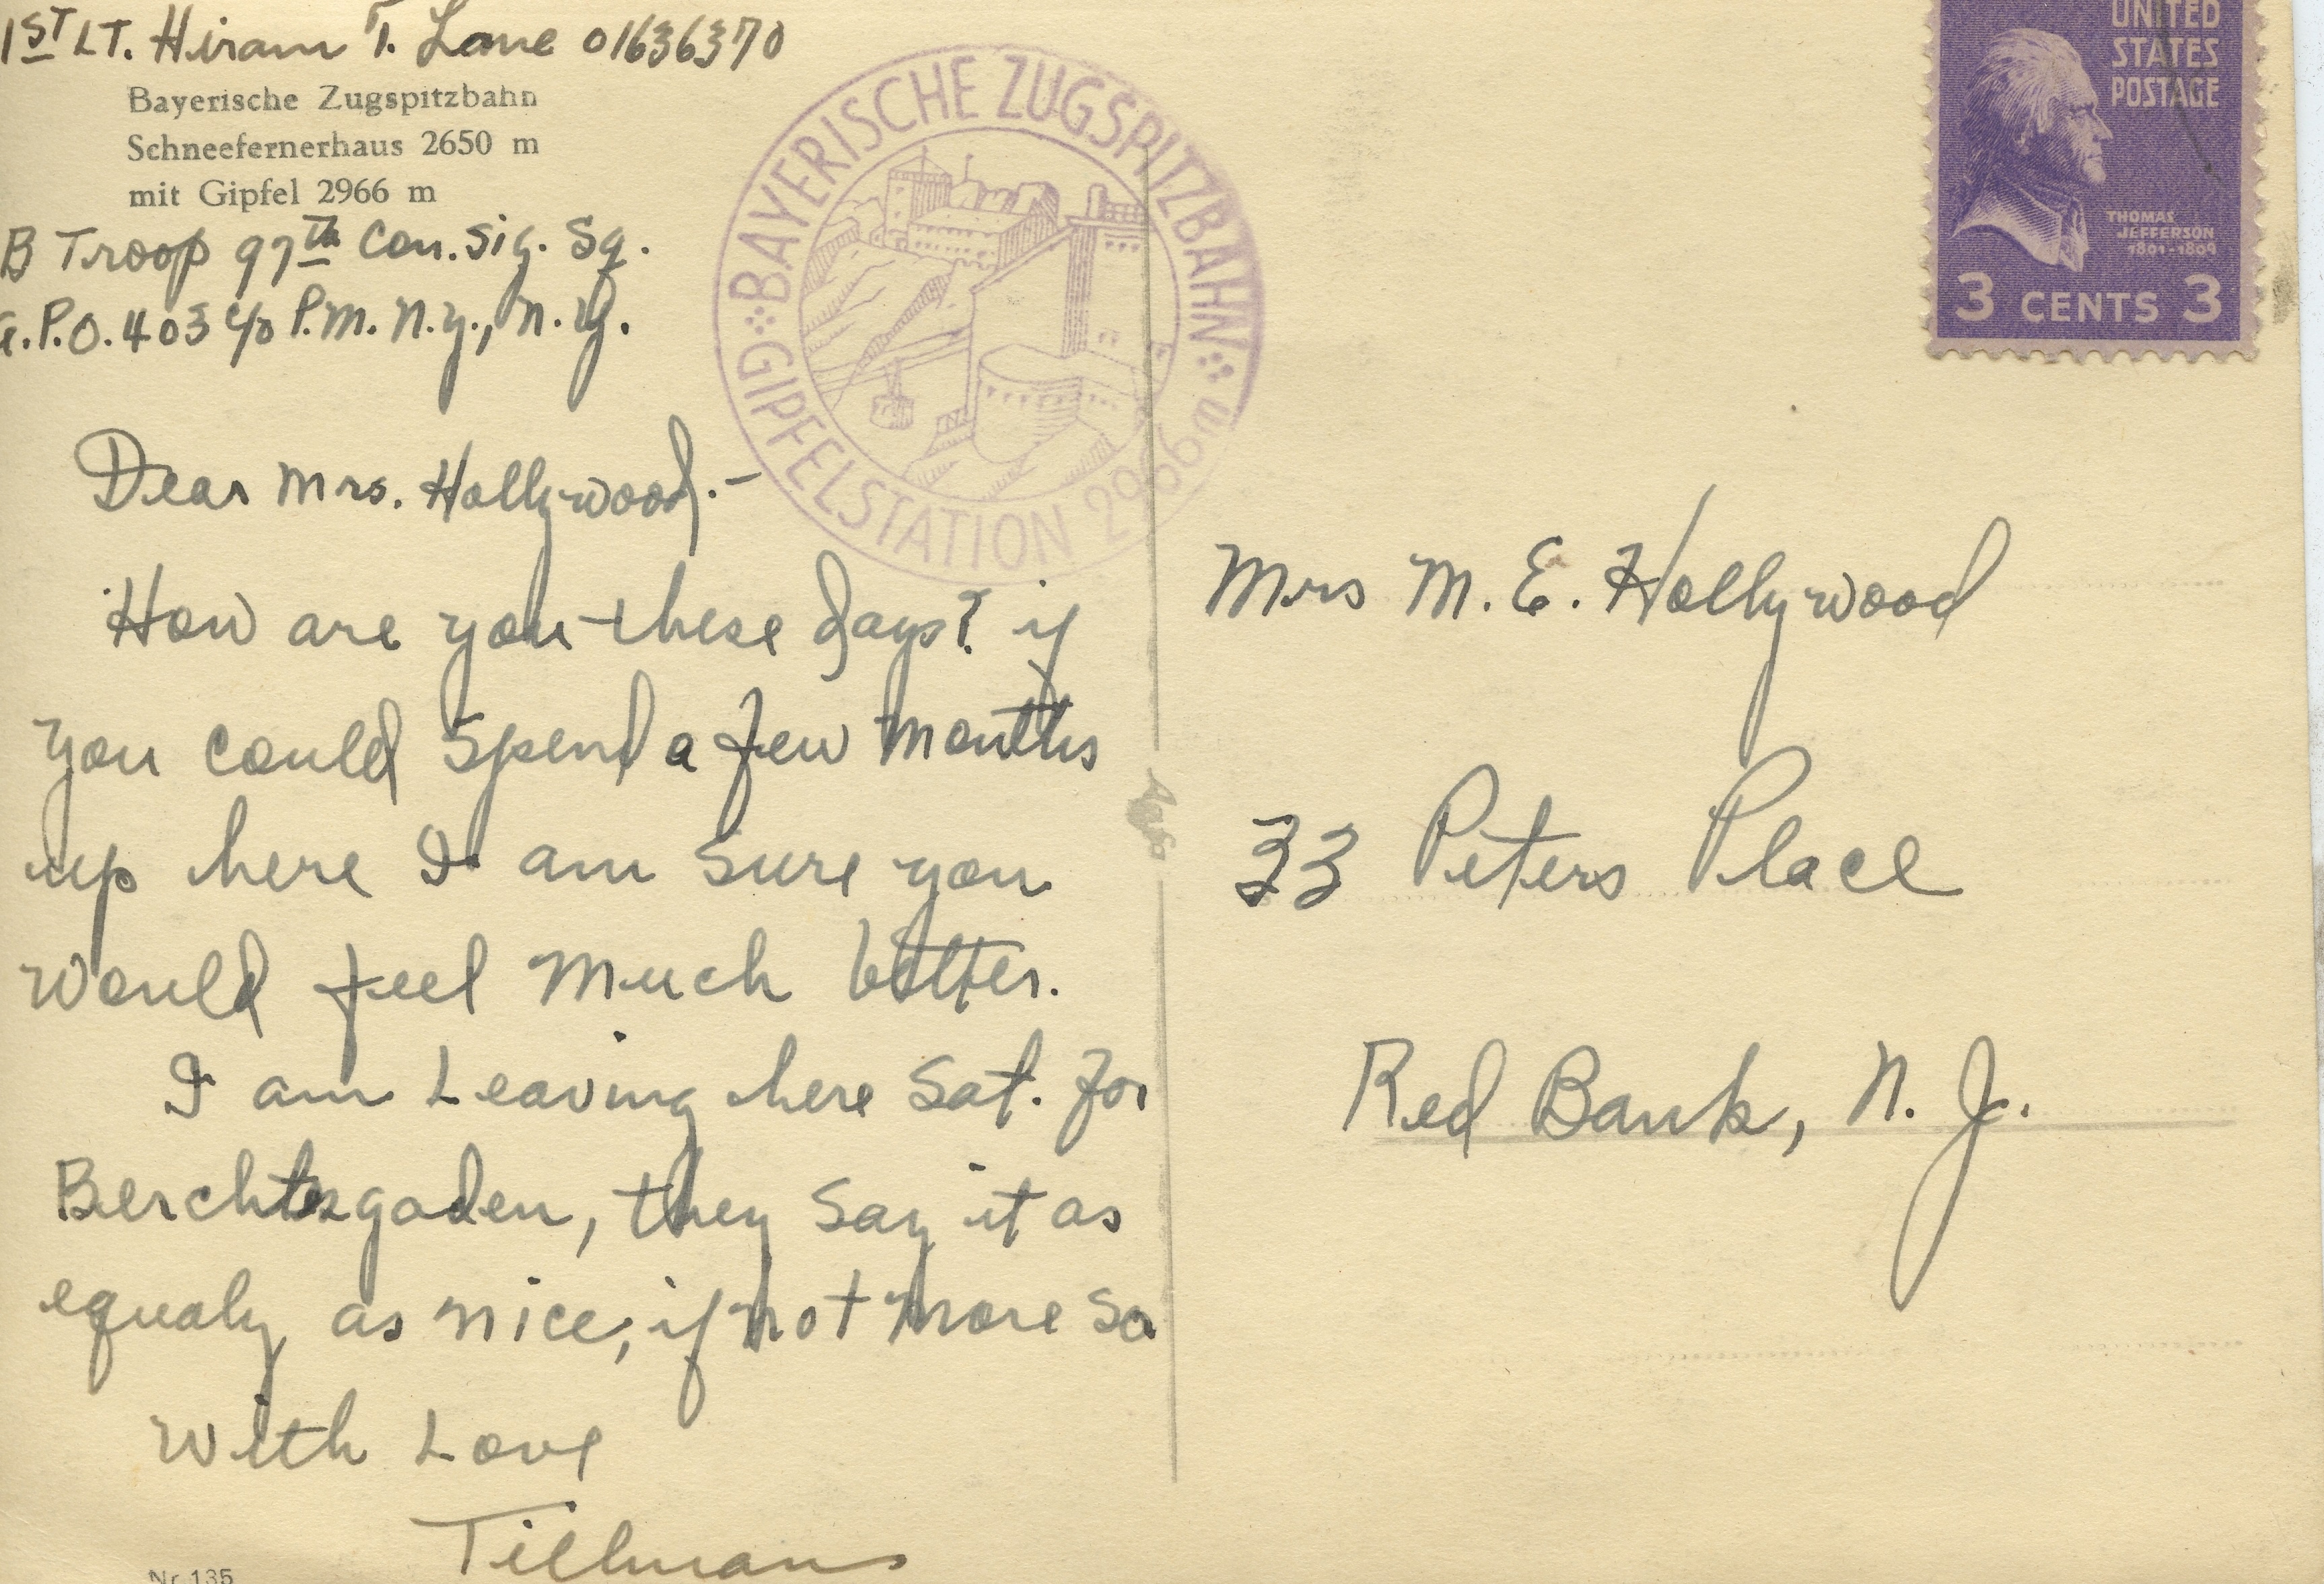 1ST LT. Hiram T. Lane 01636370
Bayerische Zugspitzbahn
Schneefernerhaus 2650 m
mit Gipfel 2966 m
B Troop 97th Con. Sig. Sq.
A.P.O. 403 c/o P.M. N.Y., N.Y.
Dear Mrs. Hollywood.-
How are you these days? if
you could spend a few months
up here I am sure you
would feel much better.
I am Leaving here Sat. for
Berchtesgaden, they say it as
equaly as nice, if not more so
With Love
Tillman
Nr. 135
BAYERISCHE ZUGSPITZBAHN
GIPFELSTATION 2966 m
UNITED
STATES
POSTAGE
THOMAS
JEFFERSON
1801-1809
3 CENTS 3
Mrs M. E. Hollywood
33 Peters Place
Red Bank, N. J.